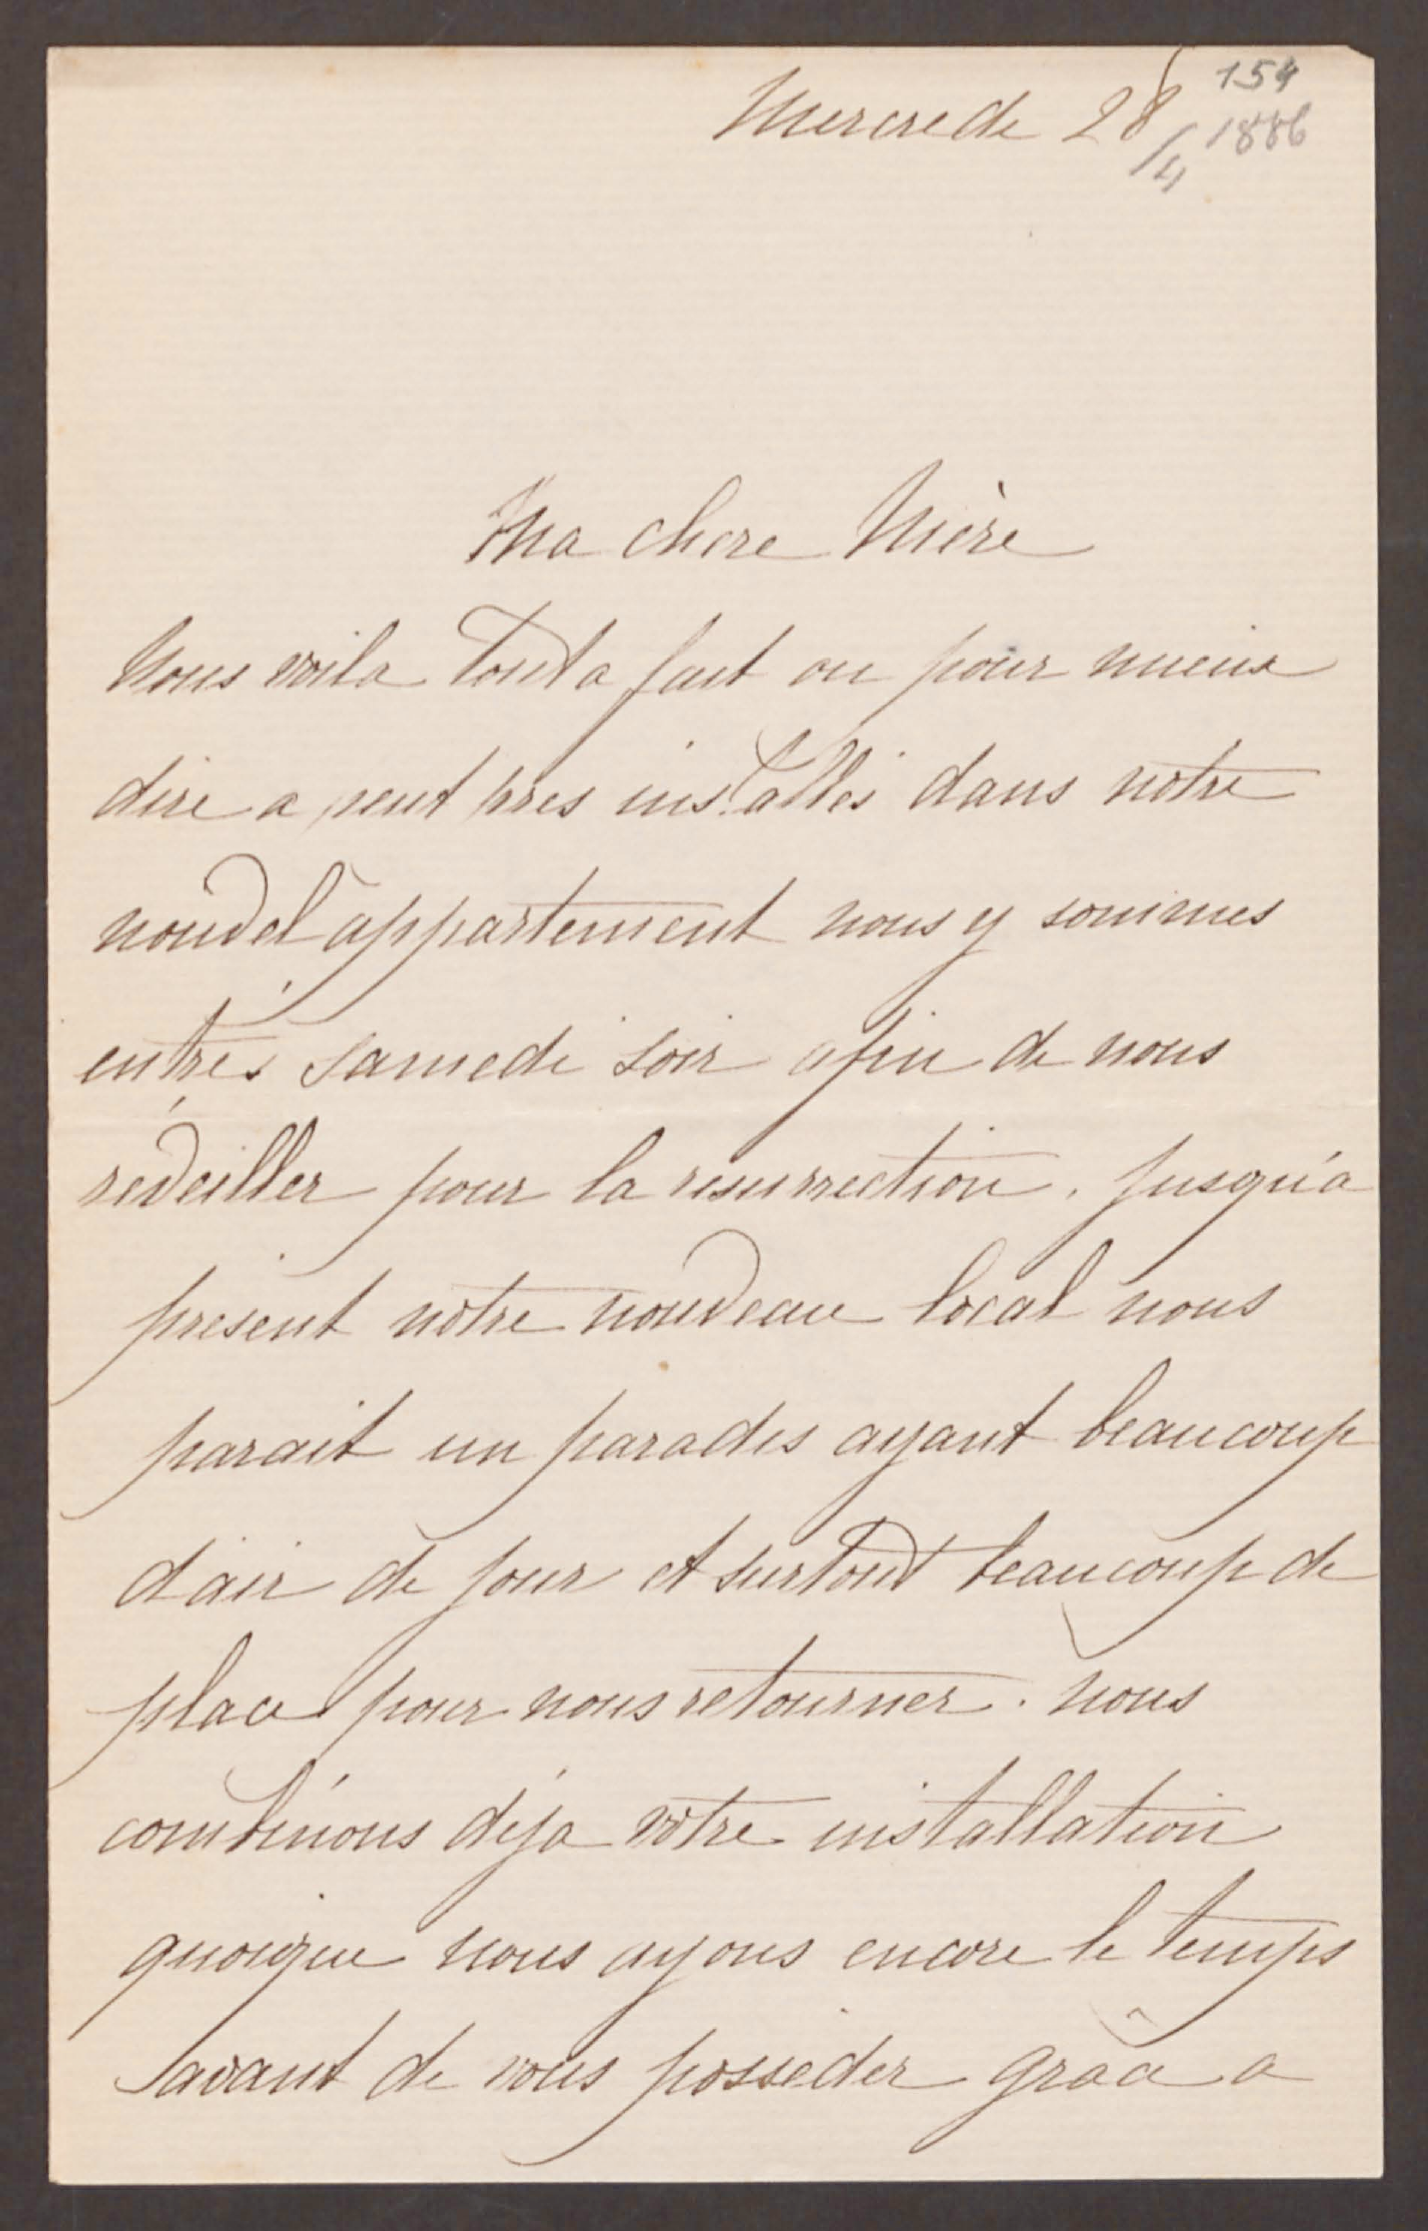 154
Mercredi 28
/4 1886
Ma chere Mère
Nous voila tout a fait ou pour mieux
dire a peut pres installés dans notre
nouvel appartement nous y sommes
entrés samedi soir afin de nous
réveiller pour la resurrection. Jusqu'a
present notre nouveau local nous
parait un paradis ayant beaucoup
d'air de jour et surtout beaucoup de
place pour nous retourner. nous
combinons déja votre installation
quoique nous ayons encore le temps
avant de vous posseder grâce a